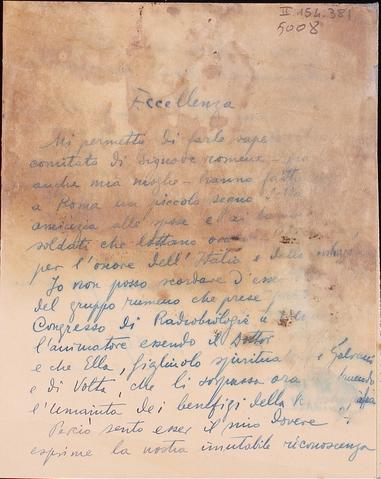 II 154.381
5008
Eccellenza
Mi permetto di farle sapere
comitato di Signore romene
anche mia moglie hanno fatto
a Roma un piccolo segno
amicizia alle spose e ai
soldati che lottano ora
per l'onore dell'Italia e della
Io non posso scordare d'esser
del gruppo rumeno che prese
Congresso di Radiobiologia a
l'animatore essendo il Dottor
e che Ella, figliuolo spiritual e Galvani
e di Volta, che li sorpassa ora
l'umanità dei benefizi della
Perciò sento esser il mio dovere
esprime la nostra imutabile riconoscenza